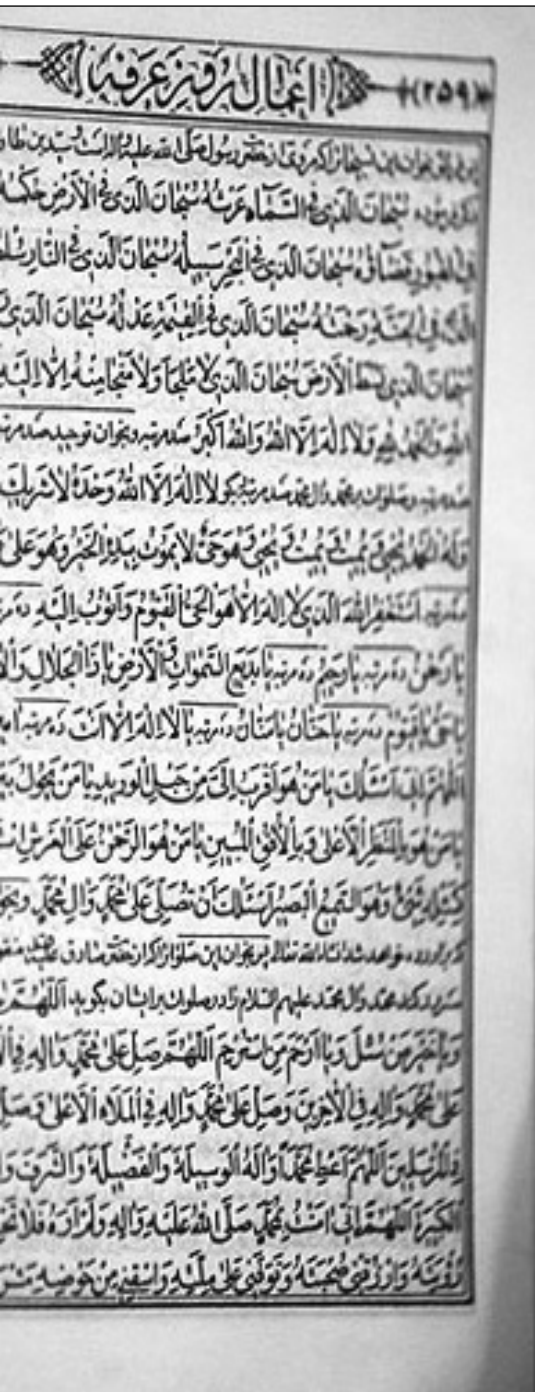 اعمال روز عرفه (۲۵۹)
بخوان این تسبیحات را که مرویست از حضرت رسول صلی الله علیه و آله است سید بن طاو
ذکر فرموده سُبْحانَ الَّذی فِی السَّمآءِ عَرْشُهُ سُبْحانَ الَّذی فِی الْاَرْضِ حُکْمُهُ
فِی الْقُبُورِ قَضآؤُهُ سُبْحانَ الَّذی فِی الْبَحْرِ سَبیلُهُ سُبْحانَ الَّذی فِی النّارِ سُلْطا
الَّذی فِی الْجَنَّةِ رَحْمَتُهُ سُبْحانَ الَّذی فِی الْقِیمَةِ عَدْلُهُ سُبْحانَ الَّذی
سُبْحانَ الَّذی بَسَطَ الْاَرْضَ سُبْحانَ الَّذی لا مَلْجَاَ وَلا مَنْجا مِنْهُ اِلّا اِلَیْهِ
اللهِ وَالْحَمْدُ لِلّهِ وَلا اِلهَ اِلَّا اللهُ وَاللهُ اَکْبَرُ صد مرتبه و بخوان توحید صد مرتبه
صد مرتبه و صلوات بر محمد و آل محمد صد مرتبه و بگو لا اِلهَ اِلَّا اللهُ وَحْدَهُ لا شَریکَ
وَلَهُ الْحَمْدُ یُحْیی وَ یُمیتُ وَ یُمیتُ وَ یُحْیی وَ هُوَ حَیٌّ لا یَمُوتُ بِیَدِهِ الْخَیْرُ وَهُوَ عَلی
ده مرتبه اَسْتَغْفِرُ اللهَ الَّذی لا اِلهَ اِلّا هُوَ الْحَیُّ الْقَیُّومُ وَاَتُوبُ اِلَیْهِ ده مر
یا رَحْمنُ ده مرتبه یا رَحیمُ ده مرتبه یا بَدیعَ السَّمواتِ وَالْاَرْضِ یا ذَا الْجَلالِ وَالْا
یا حَیُّ یا قَیُّومُ ده مرتبه یا حَنّانُ یا مَنّانُ ده مرتبه یا لا اِلهَ اِلّا اَنْتَ ده مرتبه ام
اَللّهُمَّ اِنّی اَسْئَلُکَ یا مَنْ هُوَ اَقْرَبُ اِلَیَّ مِنْ حَبْلِ الْوَریدِ یا مَنْ یَحُولُ بَیْ
یا مَنْ هُوَ بِالْمَنْظَرِ الْاَعْلی وَ بِالْاُفُقِ الْمُبینِ یا مَنْ هُوَ الرَّحْمنُ عَلَی الْعَرْشِ اسْت
کَمِثْلِهِ شَیْءٌ وَهُوَ السَّمیعُ الْبَصیرُ اَسْئَلُکَ اَنْ تُصَلِّیَ عَلی مُحَمَّدٍ وَ الِ مُحَمَّدٍ و بخوا
که برآورده خواهد شد انشاء الله تعالی پس بخوان این صلوات را که از حضرت صادق علیه السلام منقو
مسرور کند محمد و آل محمد علیهم السلام را در صلوات بر ایشان بگوید اَللّهُمَّ
وَ یا خَیْرَ مَنْ سُئِلَ وَ یا اَرْحَمَ مَنِ اسْتُرْحِمَ اَللّهُمَّ صَلِّ عَلی مُحَمَّدٍ وَ الِهِ فِی الْا
عَلی مُحَمَّدٍ وَ الِهِ فِی الْاخِرینَ وَصَلِّ عَلی مُحَمَّدٍ وَ الِهِ فِی الْمَلَاءِ الْاَعْلی وَصَلِّ
فِی الْمُرْسَلینَ اَللّهُمَّ اَعْطِ مُحَمَّداً وَ الَهُ الْوَسیلَةَ وَالْفَضیلَةَ وَالشَّرَفَ وَا
الْکَبیرَةَ اَللّهُمَّ اِنّی امَنْتُ بِمُحَمَّدٍ صَلَّی اللهُ عَلَیْهِ وَ الِهِ وَلَمْ اَرَهُ فَلا
رُؤْیَتَهُ وَارْزُقْنی صُحْبَتَهُ وَتَوَفَّنی عَلی مِلَّتِهِ وَاسْقِنی مِنْ حَوْضِهِ